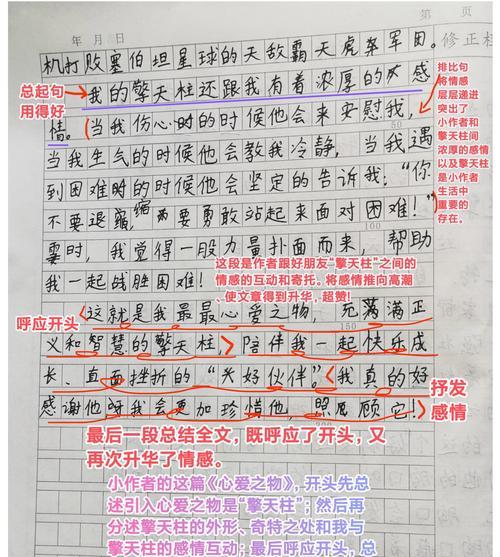 第 页
年 月 日
修正栏
机打败塞伯坦星球的天敌霸天虎集军团。
总起句
用得好
我的擎天柱还跟我有着浓厚的感
情。当我伤心时的时候他会来安慰我,
当我生气的时候他会教我冷静,当我遇
到困难时的时候他会坚定的告诉我:“你
不要退缩,为要勇敢站起来面对困难!”
霎时,我觉得一股力量扑面而来,帮助
我一起战胜困难!
排比句
将情感
层层递进
突出了
小作者和
擎天柱间
浓厚的感情
以及擎天柱
是小作者
生活中
重要的
存在。
100
这段是作者跟好朋友“擎天柱”之间的
情感的互动和寄托。将感情推向高潮
、使文章得到升华,超赞!
呼应开头
这就是我最最心爱之物,充满满正
150
义和智慧的擎天柱,陪伴我一起快乐成
长、直面挫折的“大好伙伴”。我真的好
感谢他呀我会更加珍惜他,照顾它!
抒发
感情
200
最后一段总结全文,既呼应了开头,又
再次升华了情感。
小作者的这篇《心爱之物》,开头先总
述引入心爱之物是“擎天柱”;然后再
分述擎天柱的外形、奇特之处和我与
擎天柱的感情互动;最后呼应开头,总